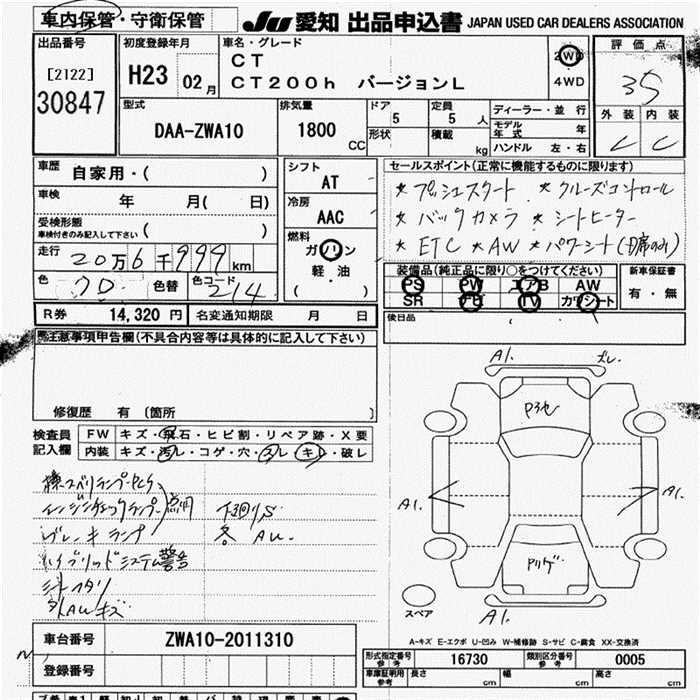 車内保管・守衛保管
JU 愛知 出品申込書 JAPAN USED CAR DEALERS ASSOCIATION
出品番号
[2122]
30847
初度登録年月
H23 02月
車名・グレード
CT
CT200h バージョンL
2WD
4WD
評価点
3.5
外装 内装
C C
型式
DAA-ZWA10
排気量
1800 CC
ドア
5
形状
定員
5 人
積載
kg
ディーラー・並行
モデル年式 年
ハンドル 左・右
車歴
自家用・( )
車検
年 月( 日)
受検形態
車検付きのみ記入して下さい ( )
走行
20万6千999km
色
クロ
色替
色コード
214
シフト
AT
冷房
AAC
燃料
ガソリン
軽・油
( )
セールスポイント(正常に機能するものに限ります)
★プッシュスタート ★クルーズコントロール
★バックカメラ ★シートヒーター
★ETC ★AW ★パワーシート(D席のみ)
装備品(純正品に限り○をつけてください)
PS PW エアB AW
SR ナビ TV カワシート
新車保証書
有・無
後日品
R券 14,320円
名変通知期限 月 日
注意事項申告欄(不具合内容等は具体的に記入して下さい)
修復歴 有 〔箇所 〕
検査員
記入欄
FW キズ・飛石・ヒビ割・リペア跡・X要
内装 キズ・汚レ・コゲ・穴・スレ・キレ・破レ
横スベリランプ
エンジンチェックランプ 点灯
ブレーキランプ
ハイブリッドシステム警告
シートヘタリ
外AWキズ
下廻りS
A1.
ズレ.
A1.
A1.
A1.
スペア
A-キズ E-エクボ U-凹み W-補修跡 S-サビ C-腐食 XX-交換済
車台番号
ZWA10-2011310
登録番号
形式指定番号 参考
16730
類別区分番号 参考
0005
車庫証明用 参考
長さ cm 幅 cm 高さ cm